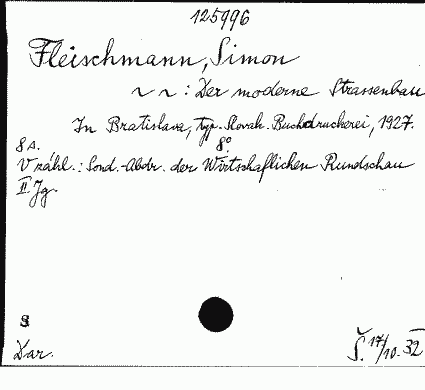 125996
Fleischmann, Simon
~ ~ : Der moderne Strassenbau
In Bratislava, typ. Slovak. Buchdruckerei, 1927.
8 A. 8°
V záhl.: Sond.-Abdr. der Wirtschaflichen Rundschau
II. Jg.
8
Dar. Š. 17/10. 32